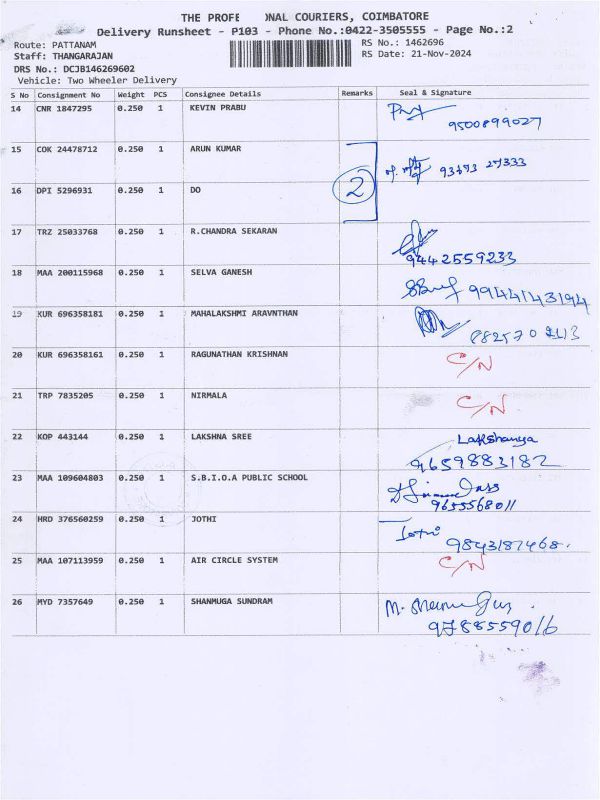 THE PROFE   ONAL COURIERS, COIMBATORE
Delivery Runsheet - P103 - Phone No.:0422-3505555 - Page No.:2
Route: PATTANAM RS No.: 1462696
Staff: THANGARAJAN RS Date: 21-Nov-2024
DRS No.: DCJB146269602
Vehicle: Two Wheeler Delivery
S No Consignment No Weight PCS Consignee Details Remarks Seal & Signature
14 CNR 1847295 0.250 1 KEVIN PRABU
9500899027
15 COK 24478712 0.250 1 ARUN KUMAR
93693 27333
16 DPI 5296931 0.250 1 DO 2
17 TRZ 25033768 0.250 1 R.CHANDRA SEKARAN
9442559233
18 MAA 200115968 0.250 1 SELVA GANESH
9944143194
19 KUR 696358181 0.250 1 MAHALAKSHMI ARAVNTHAN
20 KUR 696358161 0.250 1 RAGUNATHAN KRISHNAN C/N
21 TRP 7835205 0.250 1 NIRMALA C/N
22 KOP 443144 0.250 1 LAKSHNA SREE Lakshanya
9659883182
23 MAA 109604803 0.250 1 S.B.I.O.A PUBLIC SCHOOL
9655568011
24 HRD 376560259 0.250 1 JOTHI Jothi
9843187468.
25 MAA 107113959 0.250 1 AIR CIRCLE SYSTEM C/N
26 MYD 7357649 0.250 1 SHANMUGA SUNDRAM
9788559016